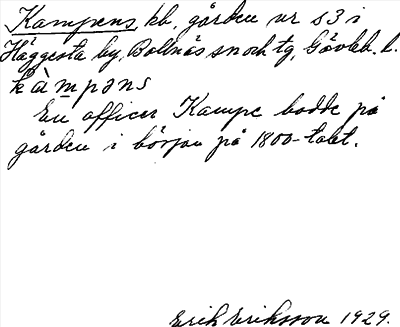 Kampens, kb, gården nr s3 i
Häggesta by, Bollnäs sn och tg, Gävleb. l.
kàmpəns
En officer Kampe bodde på
gården i början på 1800-talet.
Erik Eriksson 1929.